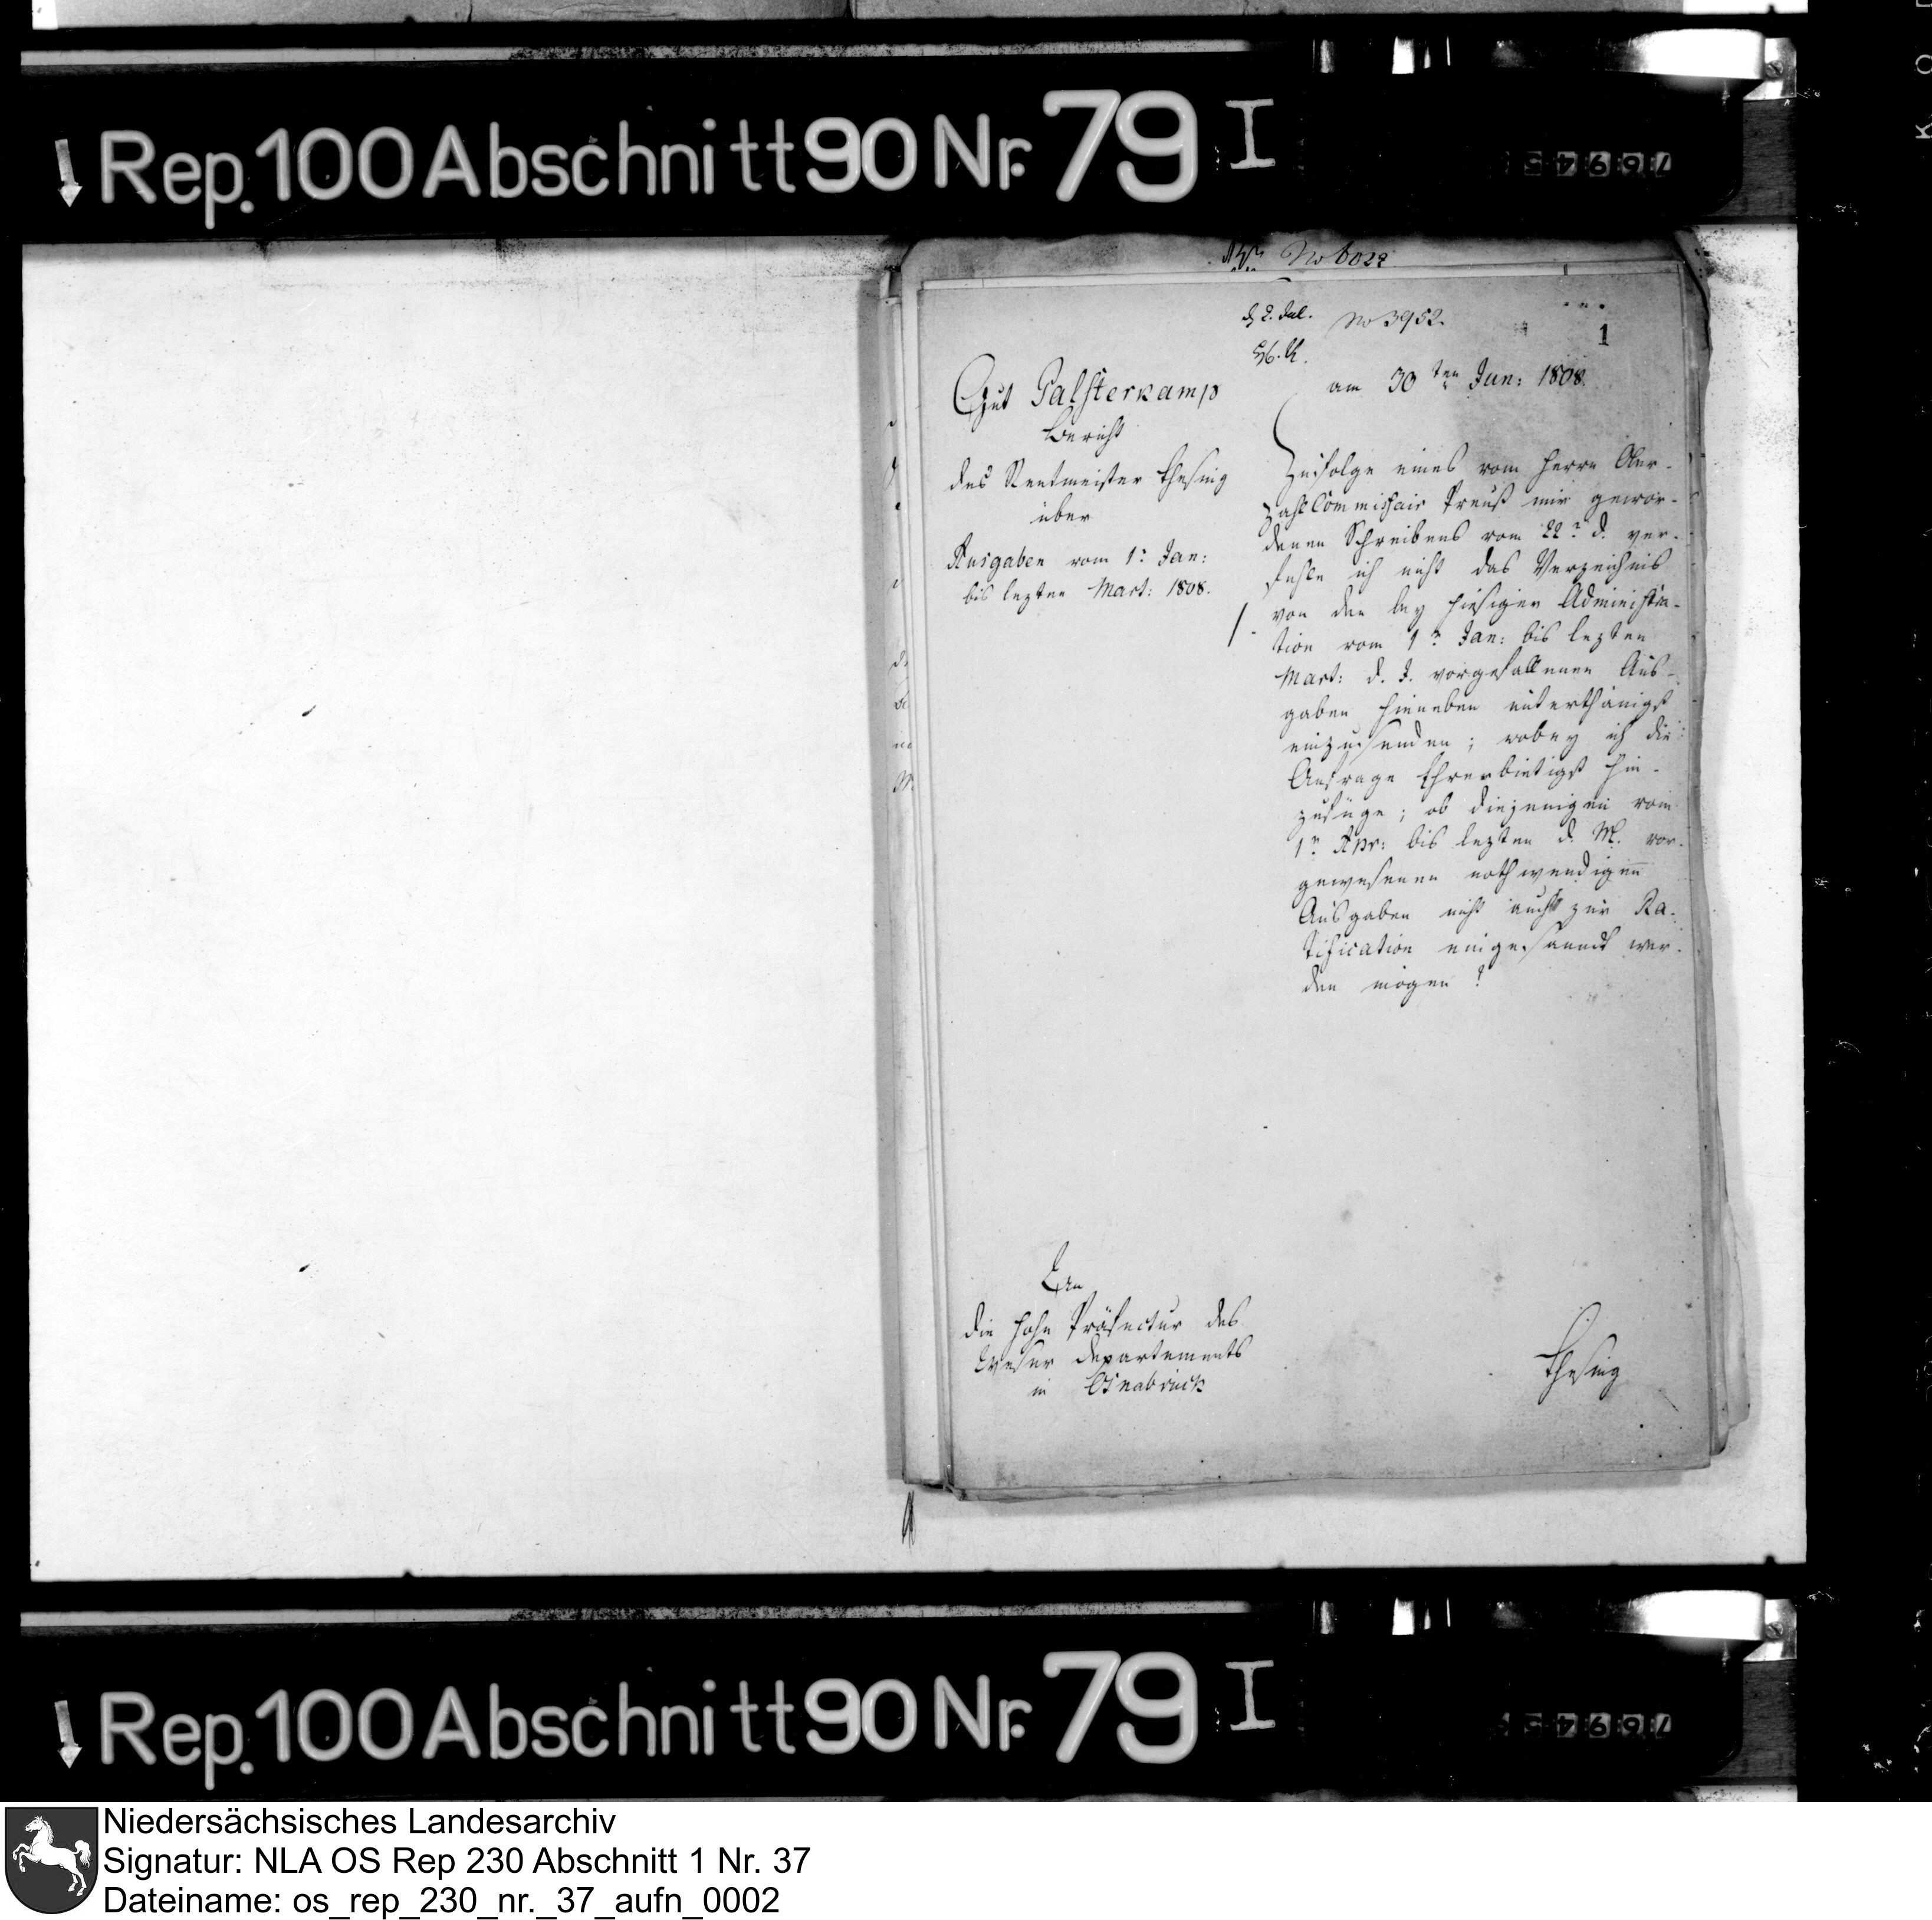 Rep. 100 Abschnitt 90 Nr. 79 I
No 6022
d. 2. Jul. No 3952.
1
am 30ten Jun: 1808.
Gut Palsterkamp
Bericht
des Rentmeister Thesing
über
Ausgaben vom 1n Jan:
bis lezten Mart: 1808.
Zufolge eines vom Herrn Ober-
zahlCommissair Preuß mir gewor-
denen Schreibens vom 22n d. ver-
fehle ich nicht das Verzeichnis
von den bey hiesiger Administra-
tion vom 1n Jan: bis lezten
Mart: d. J. vorgefallenen Aus-
gaben hieneben unterthänigst
einzusenden; wobey ich die
Anfrage Ehrerbietigst hin-
zufüge; ob diejenigen vom
1n Apr: bis lezten d. M. vor-
gewesenen nothwendigen
Ausgaben nicht auch zur Ra-
tification eingesandt wer-
den mögen?
An
die hohe Präfectur des
Weser departements
in Osnabrück
Thesing
Rep. 100 Abschnitt 90 Nr. 79 I
Niedersächsisches Landesarchiv
Signatur: NLA OS Rep 230 Abschnitt 1 Nr. 37
Dateiname: os_rep_230_nr._37_aufn_0002